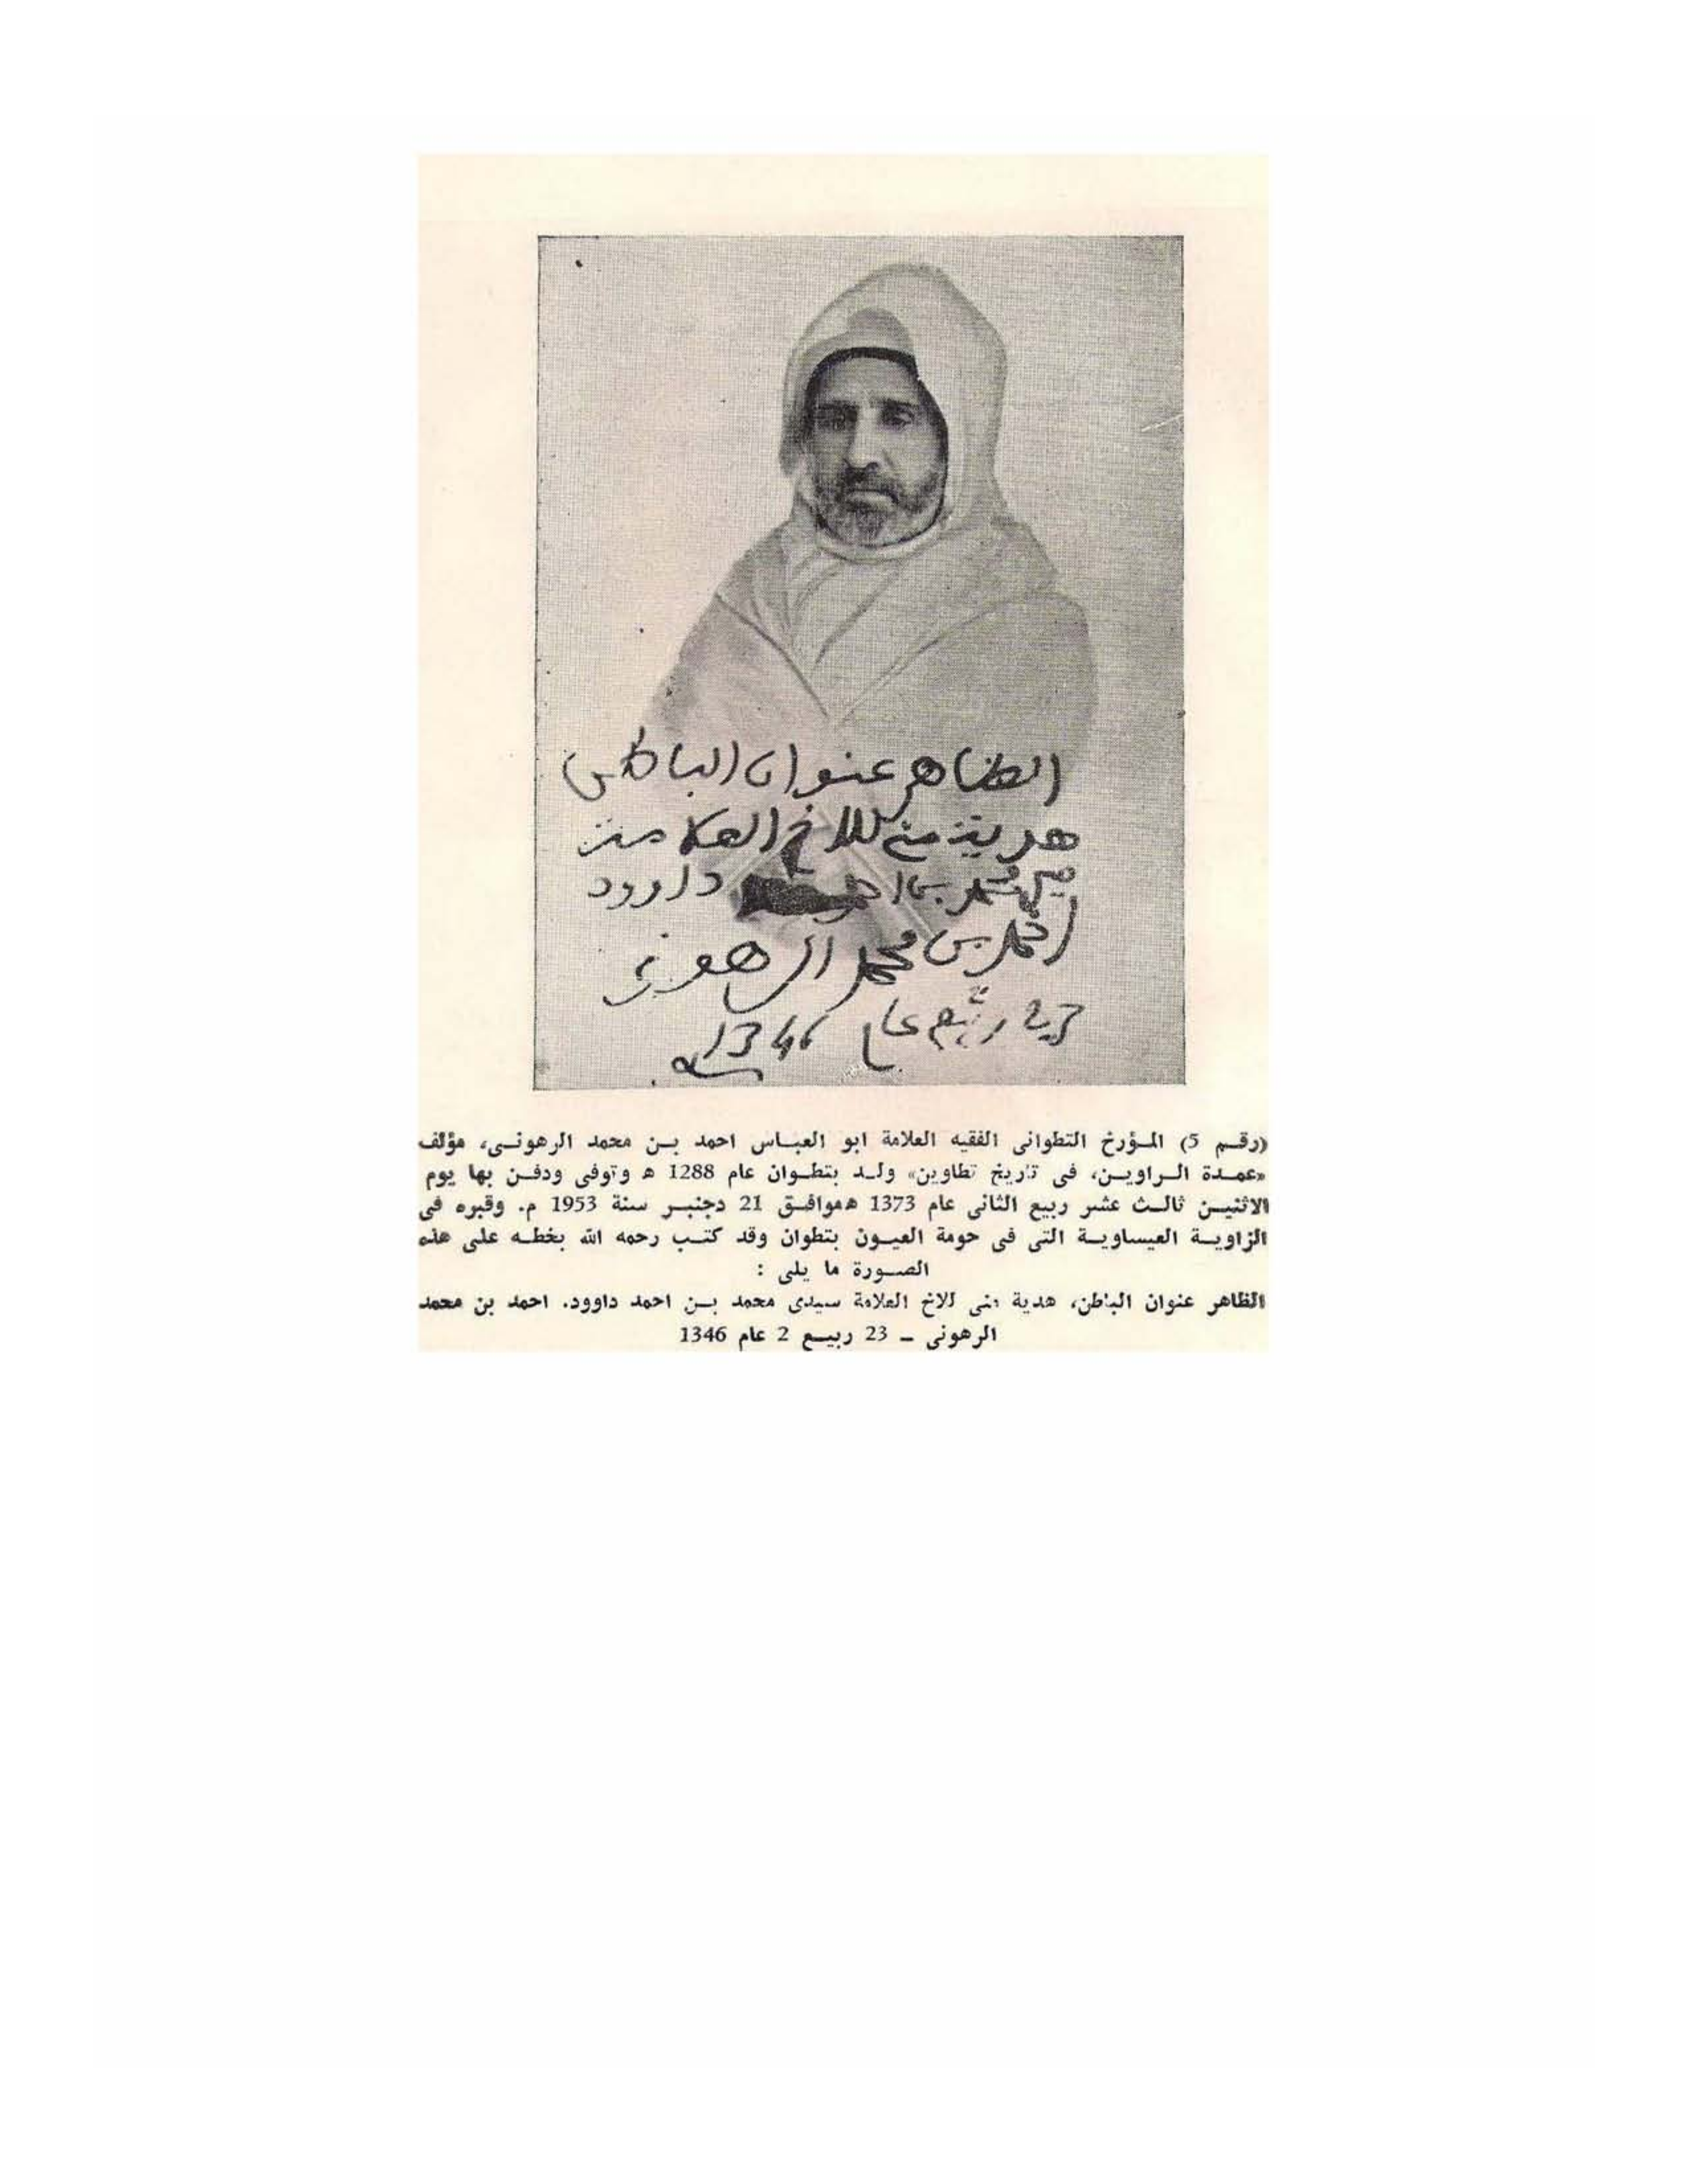 الظاهر عنوان الباطن
هدية مني للاخ العلامة
سيدي محمد بن احمد داوود
احمد بن محمد الرهوني
23 ربيع 2 عام
1346 ه
(رقـم 5) المـؤرخ التطوانى الفقيه العلامة ابو العبـاس احمد بـن محمد الرهونـى، مؤلف
«عمـدة الـراويـن، فى تاريخ تطاوين» ولـد بتطـوان عام 1288 ه وتوفى ودفـن بها يوم
الاثنيـن ثالـث عشر ربيع الثانى عام 1373 ه‍موافـق 21 دجنبـر سنة 1953 م. وقبره فى
الزاويـة العيساويـة التى فى حومة العيـون بتطوان وقد كتـب رحمه الله بخطـه على هذه
الصـورة ما يلى :
الظاهر عنوان الباطن، هدية منى للاخ العلامة سيدى محمد بـن احمد داوود. احمد بن محمد
الرهونى ـ 23 ربيـع 2 عام 1346